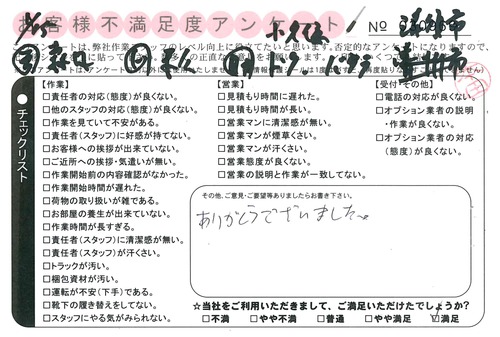 お客様不満足度アンケート
№
【作業】
□責任者の対応(態度)が良くない。
□他のスタッフの対応(態度)が良くない。
□作業を見ていて不安がある。
□責任者(スタッフ)に好感が持てない。
□お客様への挨拶が出来ていない。
□ご近所への挨拶・気遣いが無い。
□作業開始前の内容確認がなかった。
□作業開始時間が遅れた。
□荷物の取り扱いが雑である。
□お部屋の養生が出来ていない。
□作業時間が長すぎる。
□責任者(スタッフ)に清潔感が無い。
□責任者(スタッフ)が汗くさい。
□トラックが汚い。
□梱包資材が汚い。
□運転が不安(下手)である。
□靴下の履き替えをしてない。
□スタッフにやる気がみられない。
チェックリスト
【営業】
□見積もり時間に遅れた。
□見積もり時間が長い。
□営業マンに清潔感が無い。
□営業マンが煙草くさい。
□営業マンが汗くさい。
□営業態度が良くない。
□営業の説明と作業が一致してない。
【受付・その他】
□電話の対応が良くない。
□オプション業者の説明
・作業が良くない。
□オプション業者の対応
(態度)が良くない。
その他、ご意見・ご要望等ありましたらお書き下さい。
ありがとうございました。
☆当社をご利用いただきまして、ご満足いただけたでしょうか?
□不満 □やや不満 □普通 □やや満足 □満足